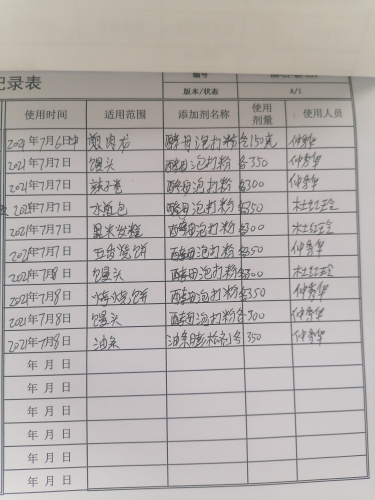 记录表
编号
版本/状态 A/1
使用时间 适用范围 添加剂名称 使用剂量 使用人员
2021年7月6日中 煎肉龙 酵母泡打粉各150克 仲秀华
2021年7月7日 馒头 酵母泡打粉各350 仲秀华
2021年7月7日 辣子卷 酵母泡打粉各300 仲秀华
2021年7月7日 水煎包 酵母泡打粉各350 杜红玲
2021年7月7日 黑米发糕 酵母泡打粉各300 杜红玲
2021年7月7日 五香烧饼 酵母泡打粉各250 仲秀华
2021年7月8日 馒头 酵母泡打粉各300 杜红玲
2021年7月8日 烧饼 酵母泡打粉各350 仲秀华
2021年7月8日 馒头 酵母泡打粉各300 仲秀华
2021年7月8日 油条 油条膨松剂 350 仲秀华
年 月 日
年 月 日
年 月 日
年 月 日
年 月 日
年 月 日